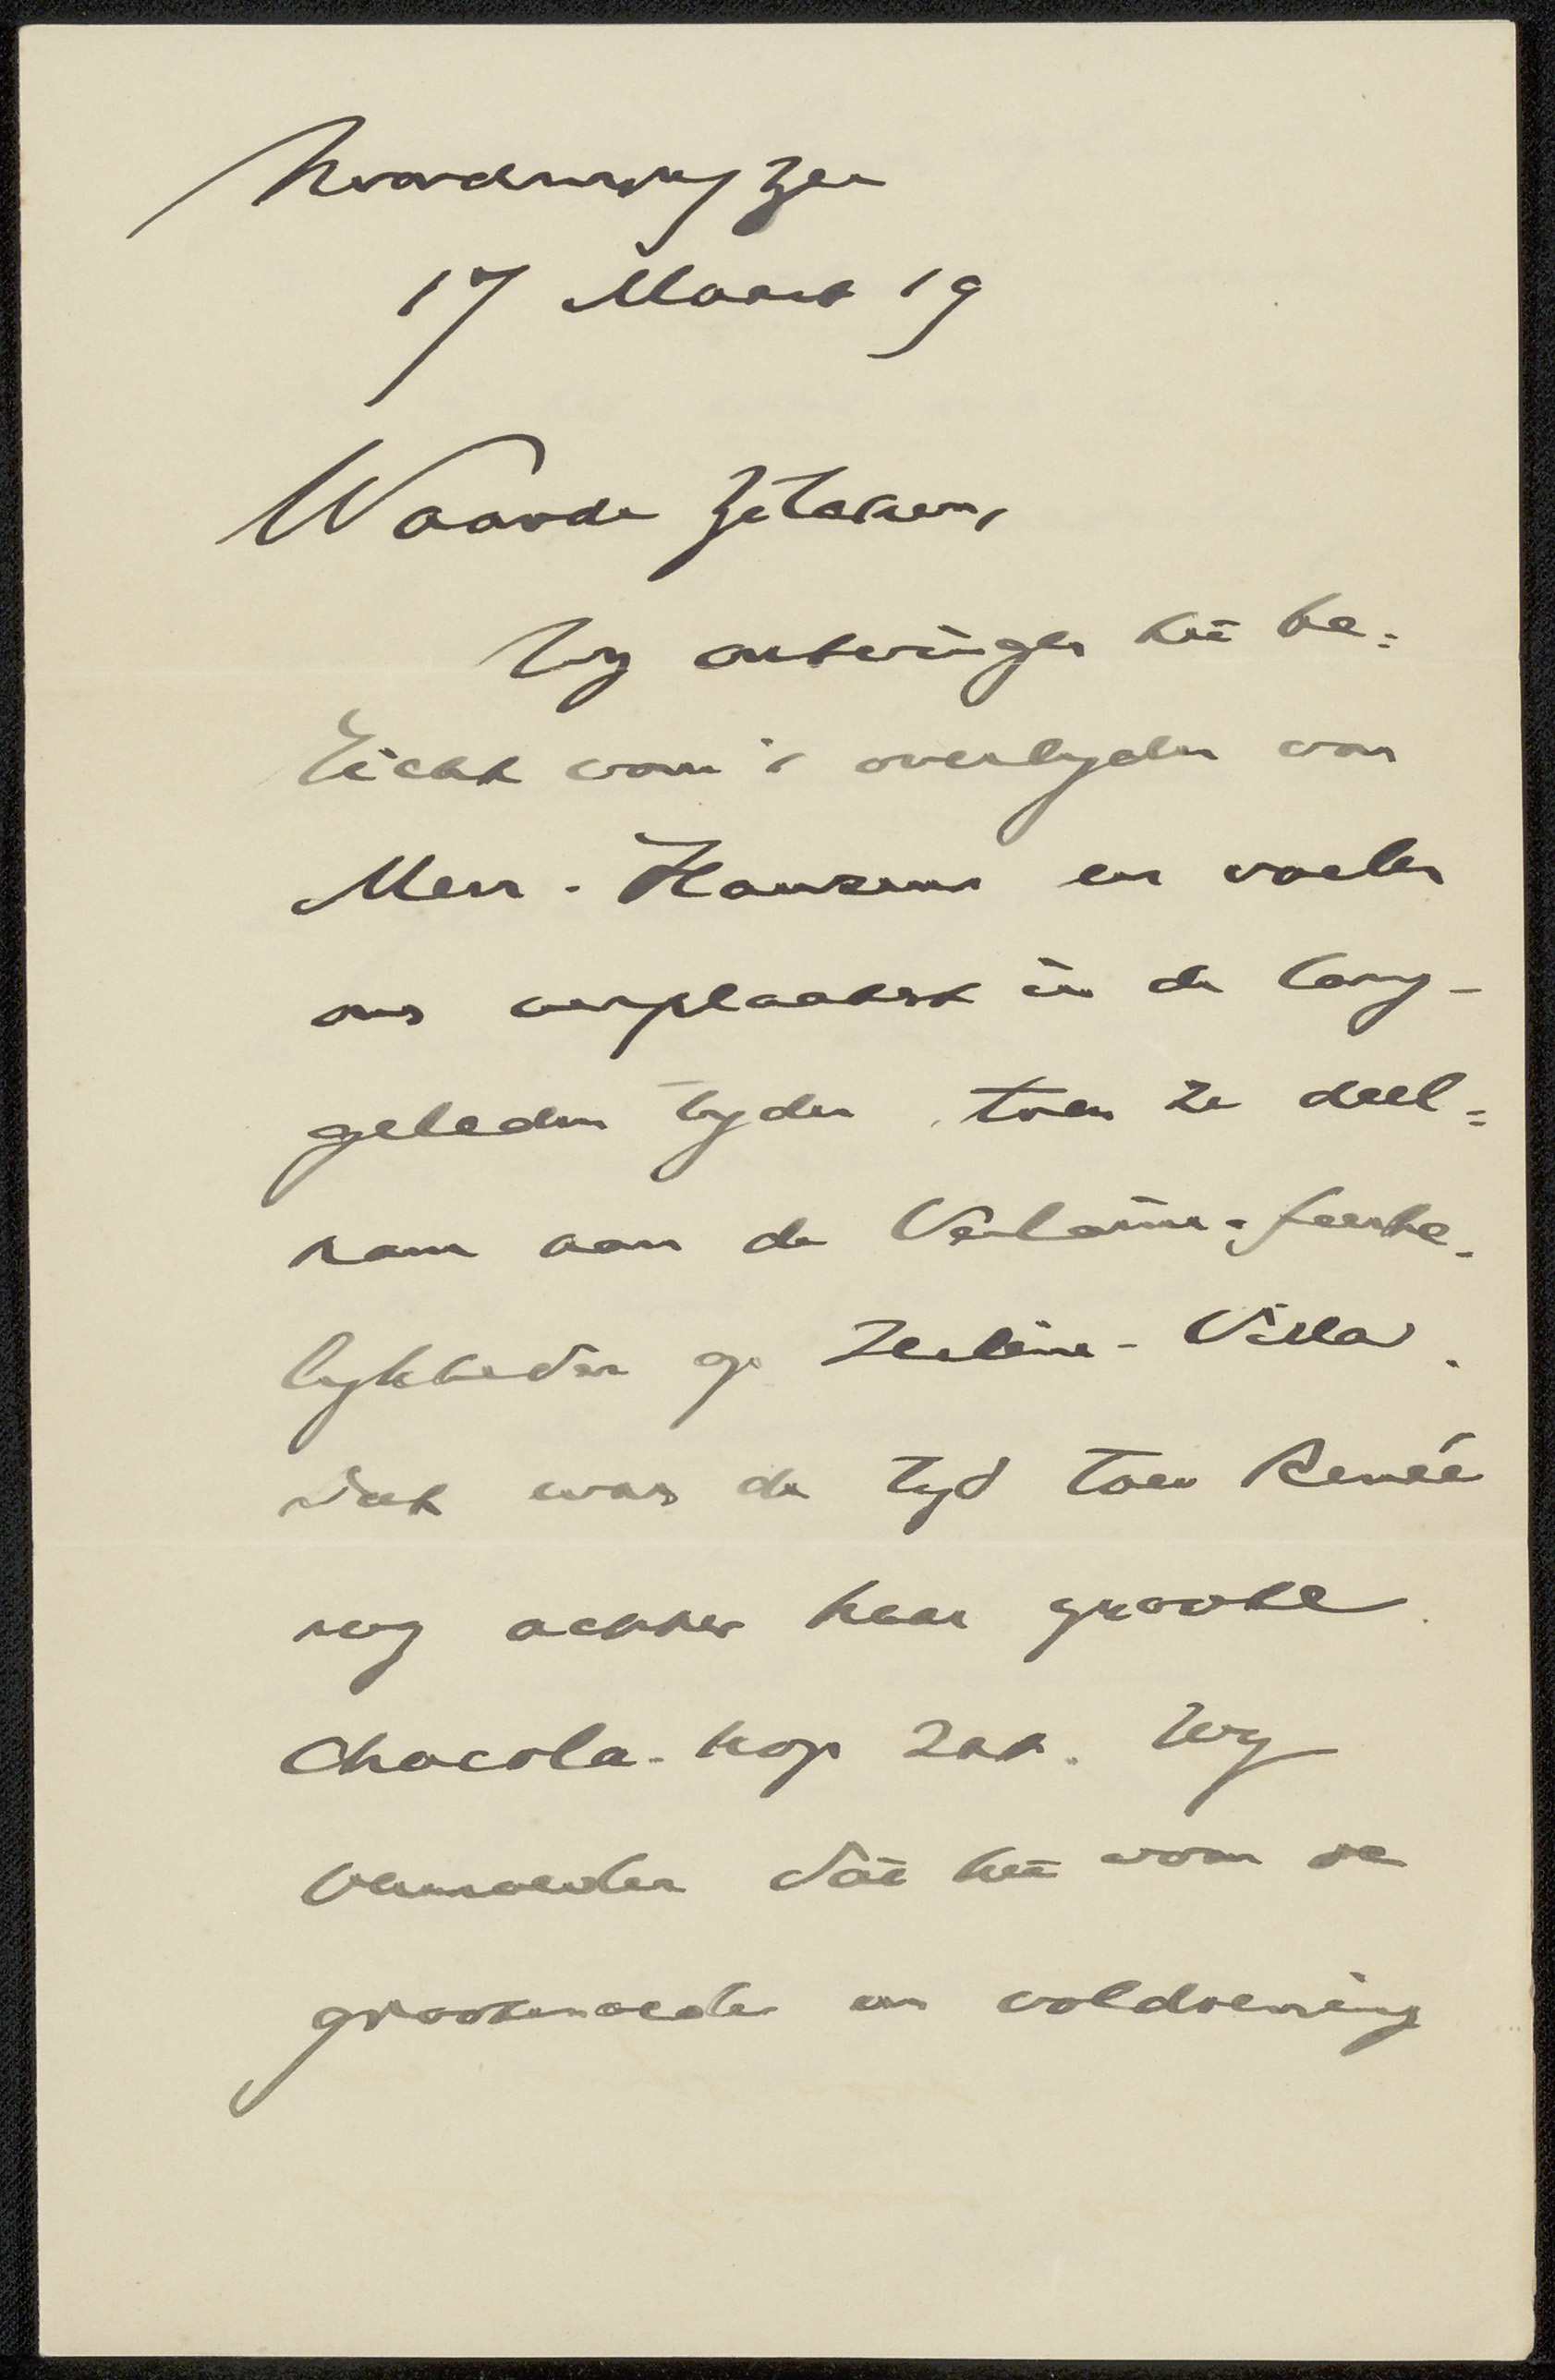 Noordwijk Zee
17 Maart 19
Waarde Zilcken,
Wy ontvingen het be=
richt van 't overlyden van
Mevr. en voelen
ons verplaatst in de lang-
geleden tyden, toen ze deel=
nam aan de Verlaine-feeste-
lykheden op Helene-Villa.
Dat was de tyd toen Renée
nog achter haar groote
Chocola-kop zat. Wy
vermoeden dat het voor de
grootmoeder een voldoening